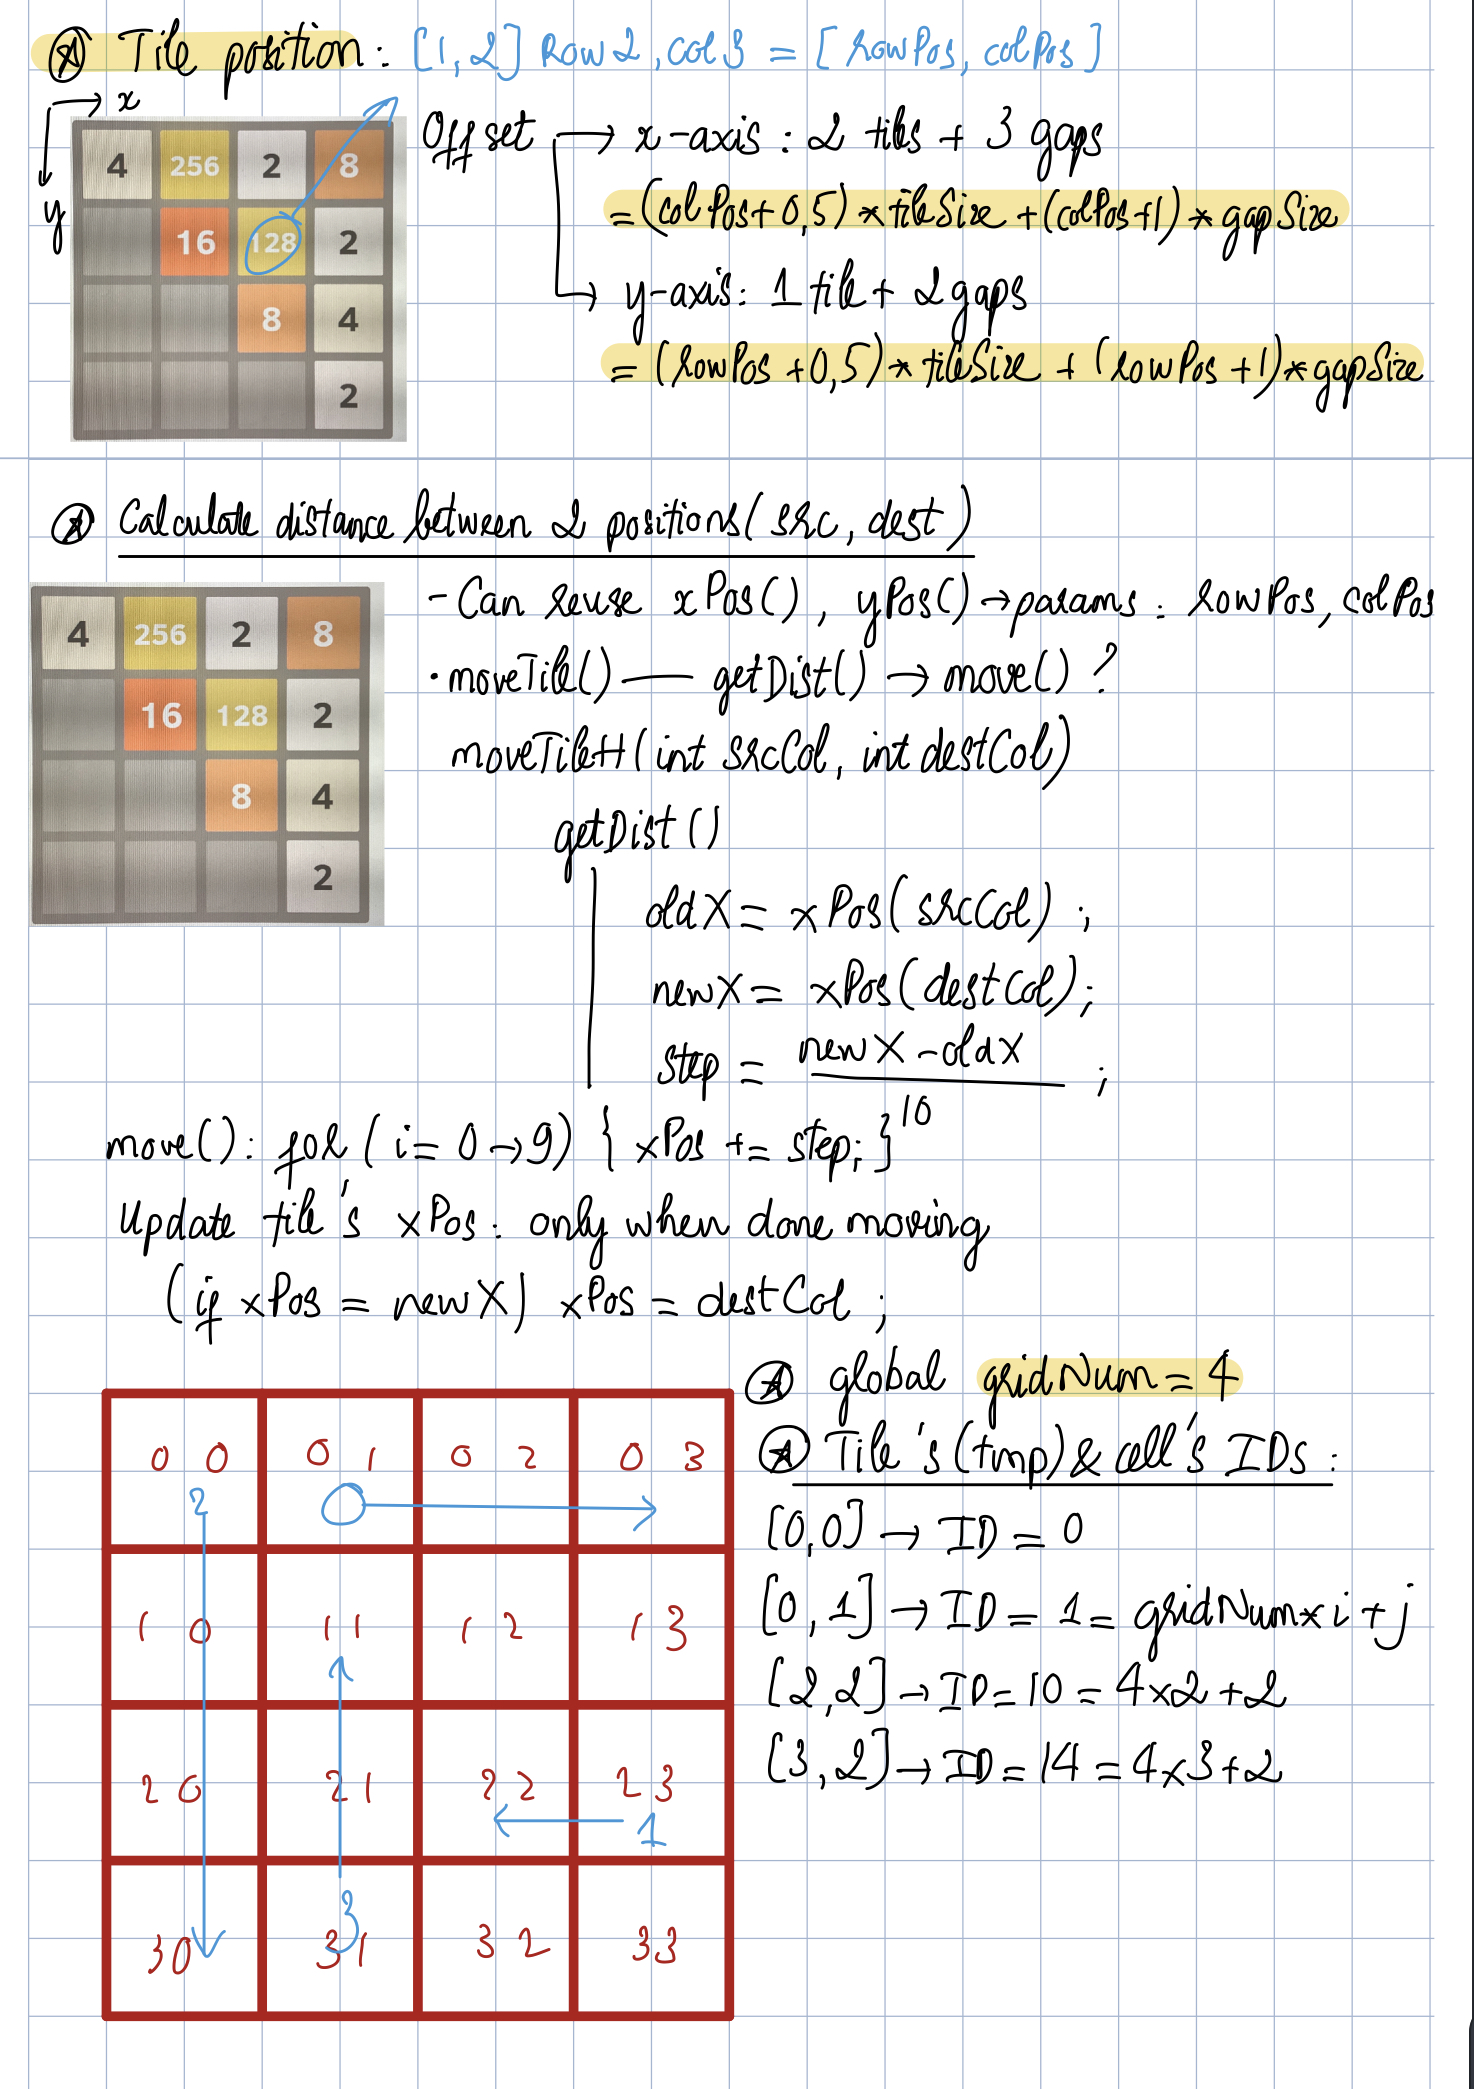 Tile position: [1,2] Row 2, col 3 = [rowPos, colPos]
x
y
4 256 2 8
16 128 2
8 4
2
Offset → x-axis : 2 tiles + 3 gaps
= (colPos + 0,5) * tileSize + (colPos+1) * gapSize
→ y-axis: 1 tile + 2 gaps
= (rowPos + 0,5) * tileSize + (rowPos + 1) * gapSize
Calculate distance between 2 positions (src, dest)
4 256 2 8
16 128 2
8 4
2
- Can reuse xPos(), yPos() → params : rowPos, colPos
· moveTile() — getDist() → move() ?
moveTileH (int srcCol, int destCol)
getDist ()
oldX = xPos(srcCol) ;
newX = xPos(destCol);
step = newX - oldX / 10 ;
move(): for (i = 0 → 9) { xPos += step; }
Update tile's xPos: only when done moving
(if xPos = newX) xPos = destCol ;
global gridNum = 4
Tile's (tmp) & cell's IDs :
[0,0] → ID = 0
[0,1] → ID = 1 = gridNum x i + j
[2,2] → ID = 10 = 4x2 + 2
[3,2] → ID = 14 = 4x3 + 2
0 0 0 1 0 2 0 3
2 0
1 0 1 1 1 2 1 3
2 0 2 1 2 2 2 3
1
3 0 3 1 3 2 3 3
3